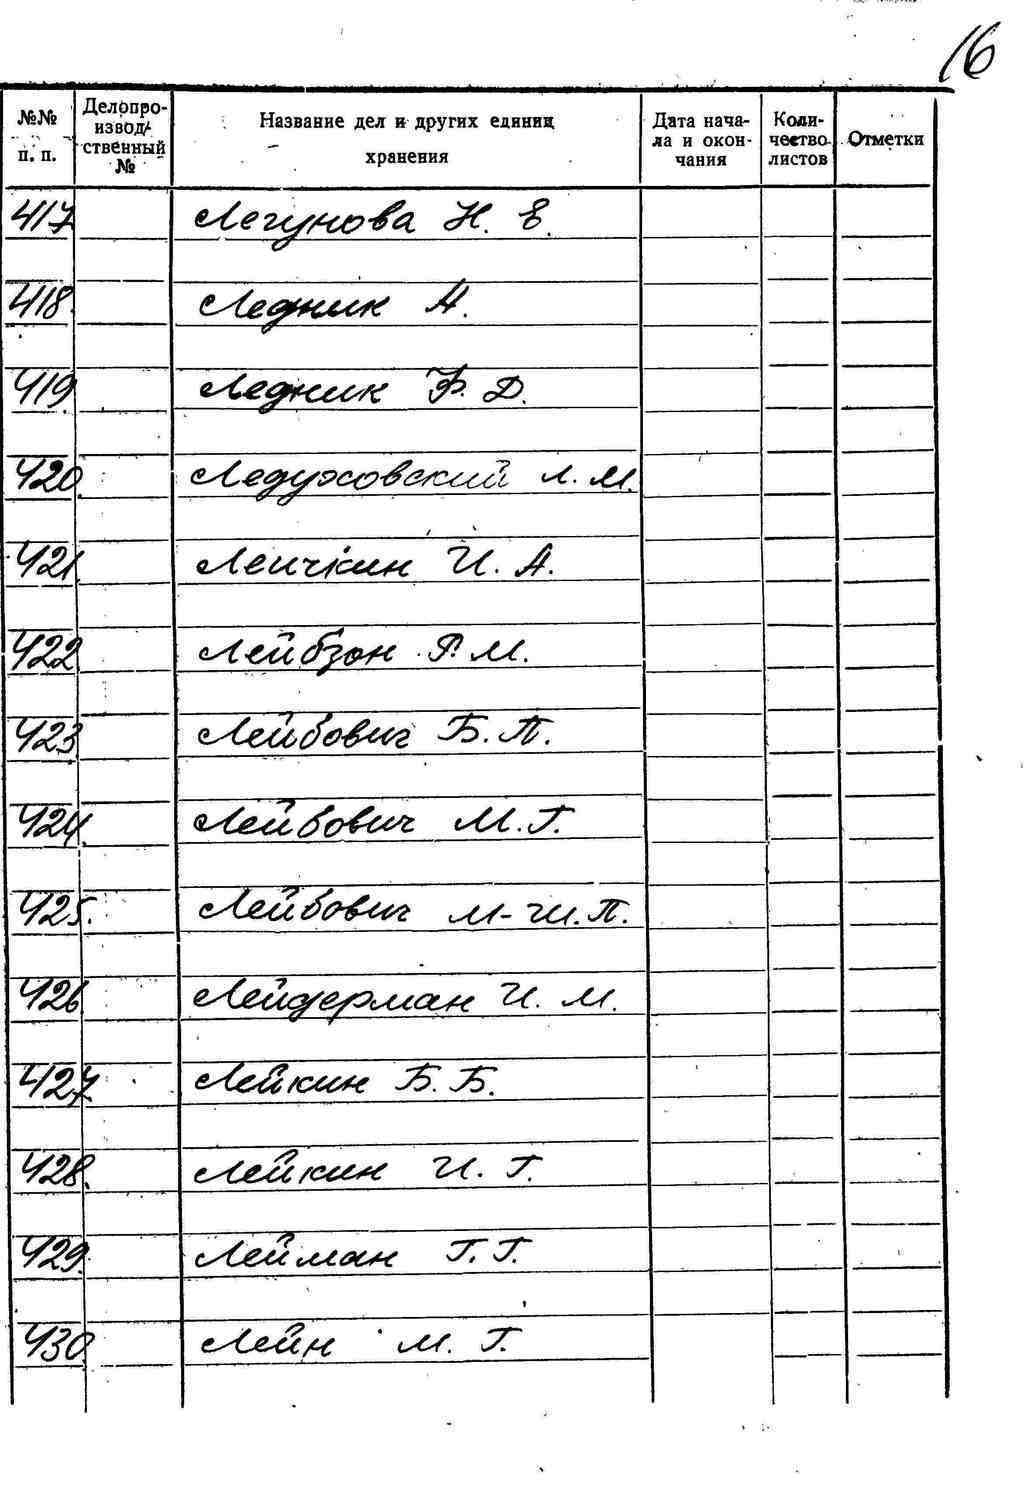 16
№№ п. п. Делопроизводственный № Название дел и других единиц хранения Дата начала и окончания Количество листов Отметки
417 Легунова Н. Е.
418. Ледник А.
419. Ледник Ф. Д.
420. Ледуховский Л. М.
421. Леичкин И. А.
422. Лейбзон Р. М.
423. Лейбович Б. П.
424. Лейбович М. Г.
425. Лейбович М-Ш. П.
426. Лейдерман И. М.
427. Лейкин Б. Б.
428. Лейкин И. Г.
429. Лейман Г. Г.
430. Лейн М. Г.